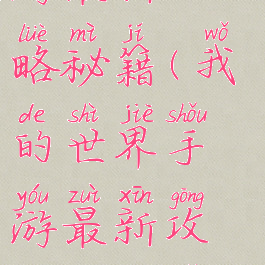 lüè mì jí wǒ
略秘籍(我
de shì jiè shǒu
的世界手
yóu zuì xīn gōng
游最新攻